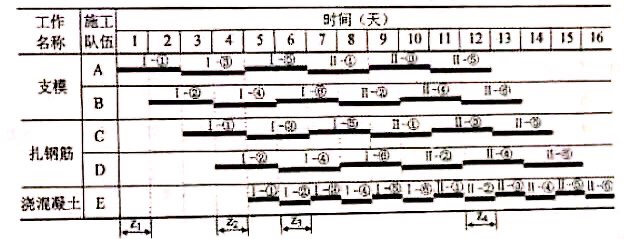 工作名称 施工队伍 时间（天）
1 2 3 4 5 6 7 8 9 10 11 12 13 14 15 16
支模 A Ⅰ-① Ⅰ-③ Ⅰ-⑤ Ⅱ-① Ⅱ-③ Ⅱ-⑤
B Ⅰ-② Ⅰ-④ Ⅰ-⑥ Ⅱ-② Ⅱ-④ Ⅱ-⑥
扎钢筋 C Ⅰ-① Ⅰ-③ Ⅰ-⑤ Ⅱ-① Ⅱ-③ Ⅱ-⑤
D Ⅰ-② Ⅰ-④ Ⅰ-⑥ Ⅱ-② Ⅱ-④ Ⅱ-⑥
浇混凝土 E Ⅰ-① Ⅰ-② Ⅰ-③ Ⅰ-④ Ⅰ-⑤ Ⅰ-⑥ Ⅱ-① Ⅱ-② Ⅱ-③ Ⅱ-④ Ⅱ-⑤ Ⅱ-⑥
Z1 Z2 Z3 Z4